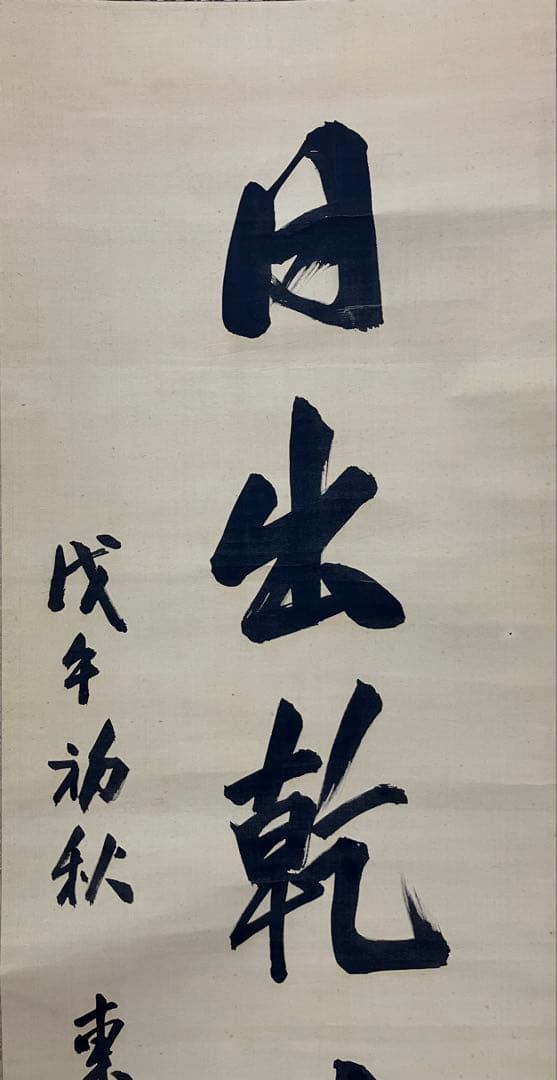 日出乾
戊午初秋